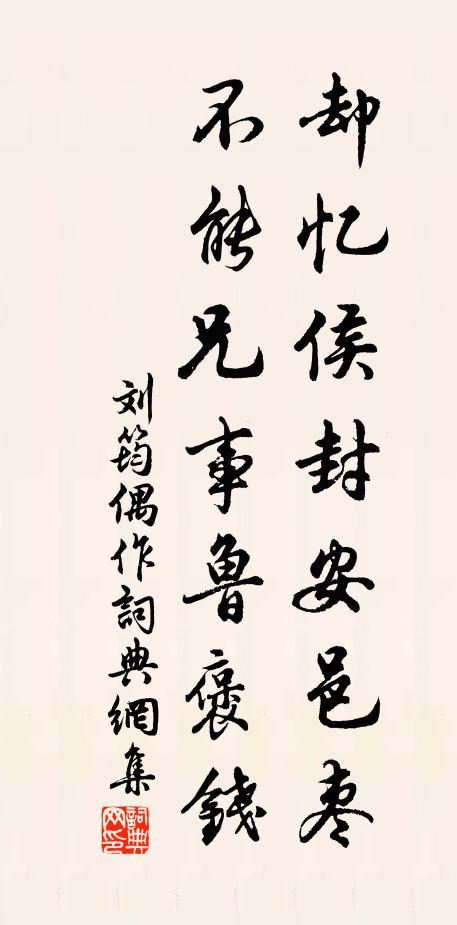 却忆侯封安邑枣
不能兄事鲁褒錢
刘筠偶作詞典網集
詞典网印